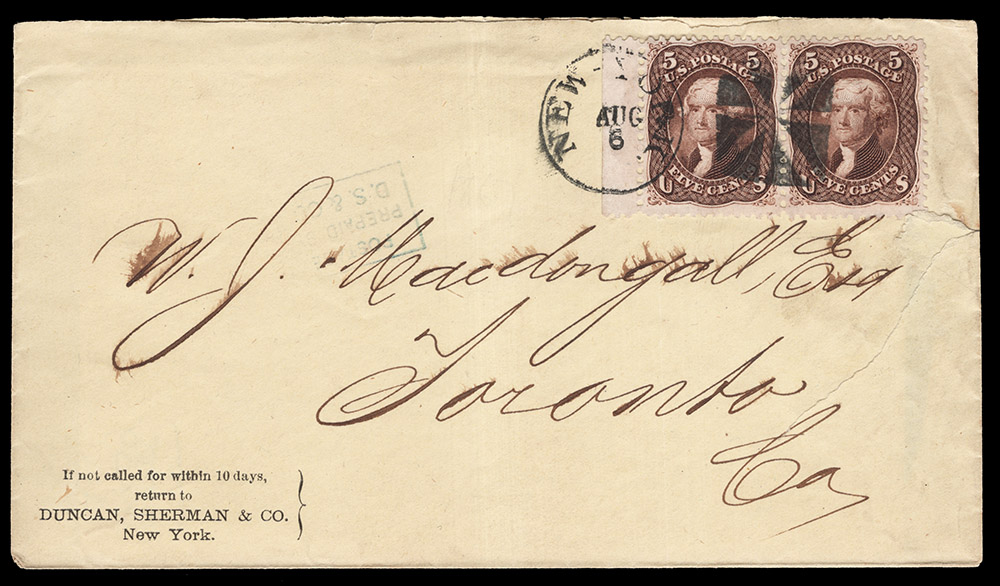 NEW-YORK
AUG
6
5 5
U.S. POSTAGE
U FIVE CENTS S
5 5
U.S. POSTAGE
U FIVE CENTS S
PREPAID
D.S. &
W. J. Macdongall, Esq
Toronto
Ca
If not called for within 10 days,
return to
DUNCAN, SHERMAN & CO.
New York.